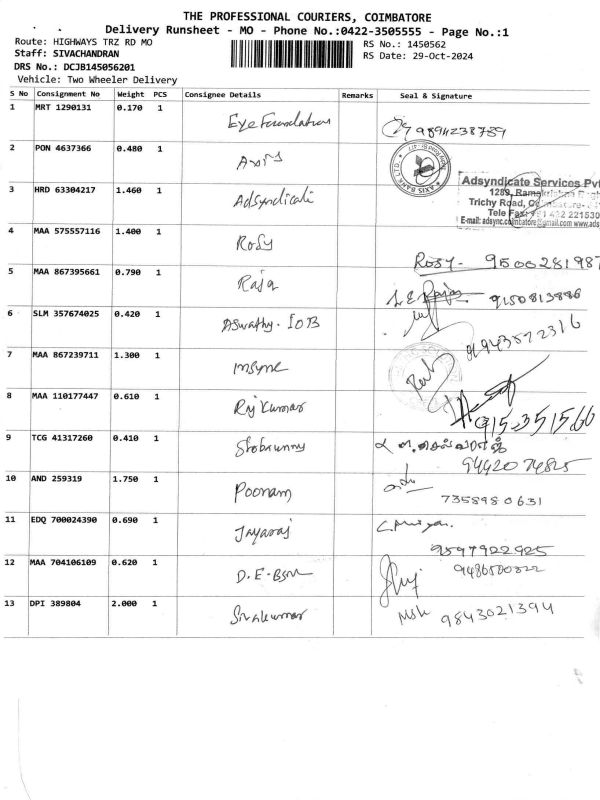 THE PROFESSIONAL COURIERS, COIMBATORE
Delivery Runsheet - MO - Phone No.:0422-3505555 - Page No.:1
Route: HIGHWAYS TRZ RD MO
RS No.: 1450562
Staff: SIVACHANDRAN
RS Date: 29-Oct-2024
DRS No.: DCJB145056201
Vehicle: Two Wheeler Delivery
S No Consignment No Weight PCS Consignee Details Remarks Seal & Signature
1 MRT 1290131 0.170 1 Eye Foundation 9894238789
2 PON 4637366 0.480 1 Axis
AXIS BANK LTD.
3 HRD 63304217 1.460 1 Adsyndicate
Adsyndicate Services Pvt
1289,
Trichy Road,
Tele Fax:
4 MAA 575557116 1.400 1 Rosy Rosy- 9500281987
5 MAA 867395661 0.790 1 Raja 9150813886
6 SLM 357674025 0.420 1 Aswathy. IOB
7 MAA 867239711 1.300 1 Insync
8 MAA 110177447 0.610 1 Rijkumar
9 TCG 41317260 0.410 1 9442074825
10 AND 259319 1.750 1 Poonam 7358980631
11 EDQ 700024390 0.690 1 Jayaraj 9597922925
12 MAA 704106109 0.620 1
13 DPI 389804 2.000 1 Sivakumar 9843021394